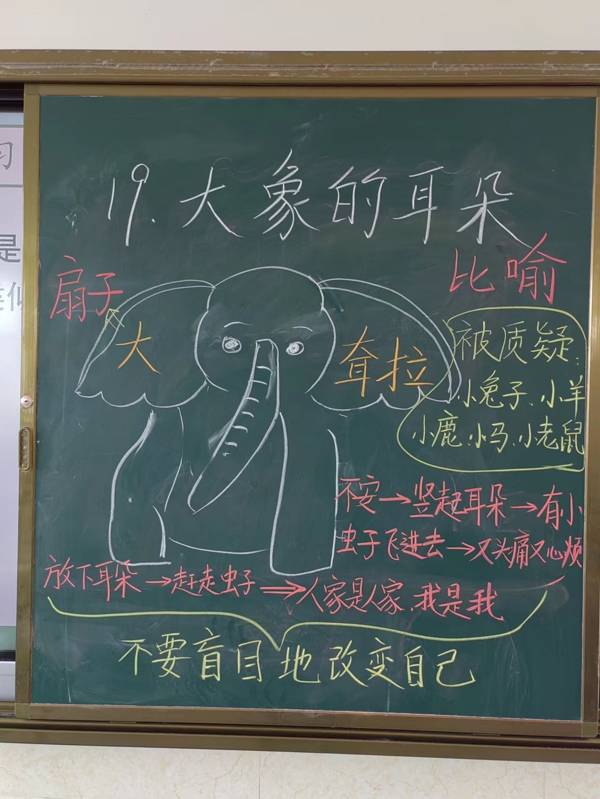 习
是
19.大象的耳朵
扇子
比喻
大
耷拉
被质疑:
小兔子、小羊
小鹿、小马、小老鼠
不安→竖起耳朵→有小
虫子飞进去→又头痛又心烦
放下耳朵→赶走虫子⇒人家是人家,我是我
不要盲目地改变自己